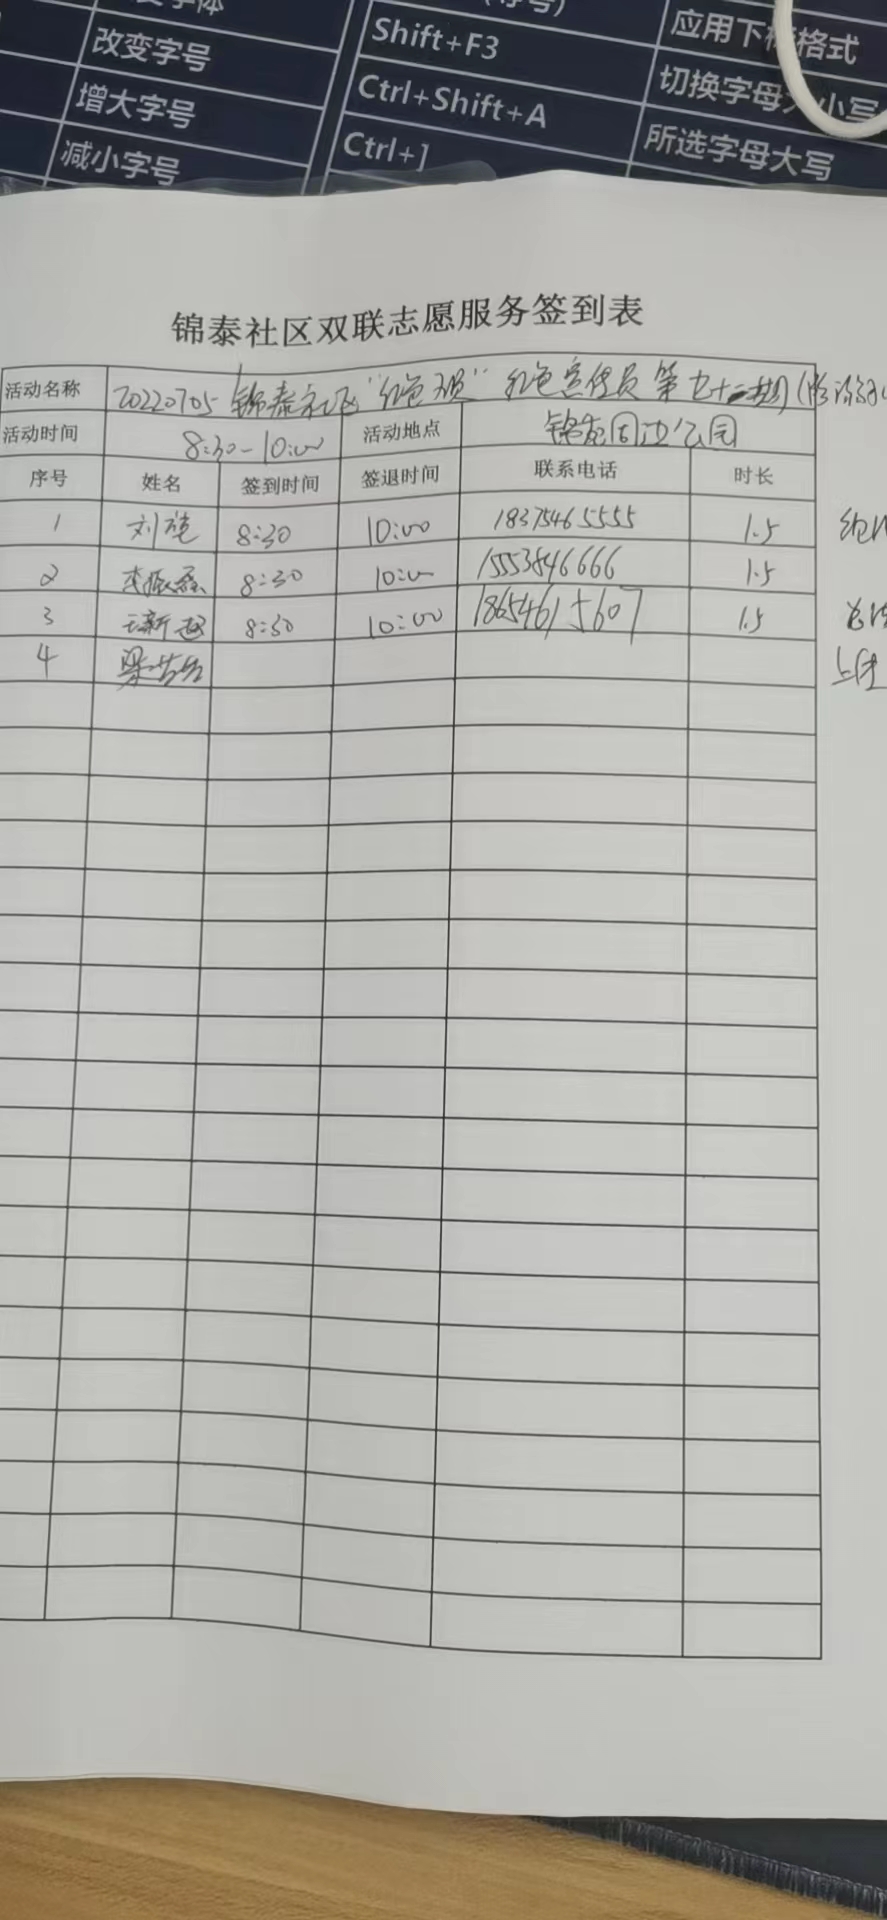 字体
改变字号
Shift+F3
应用下标格式
增大字号
Ctrl+Shift+A
切换字母大小写
减小字号
Ctrl+]
所选字母大写
锦泰社区双联志愿服务签到表
活动名称 20220705 锦泰社区"红色 "红色宣传员第七十二期(
活动时间 8:30-10:00 活动地点 锦苑周边公园
序号 姓名 签到时间 签退时间 联系电话 时长
1 刘 8:30 10:00 18375465555 1.5
2 李振磊 8:30 10:00 15553846666 1.5
3 新 8:30 10:00 18654615607 1.5
4 梁